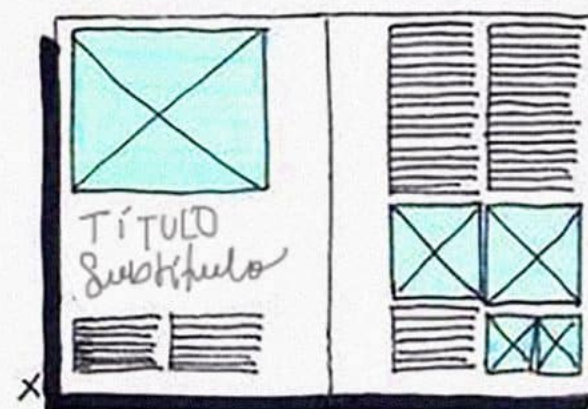 TíTULO
Subtítulo
X